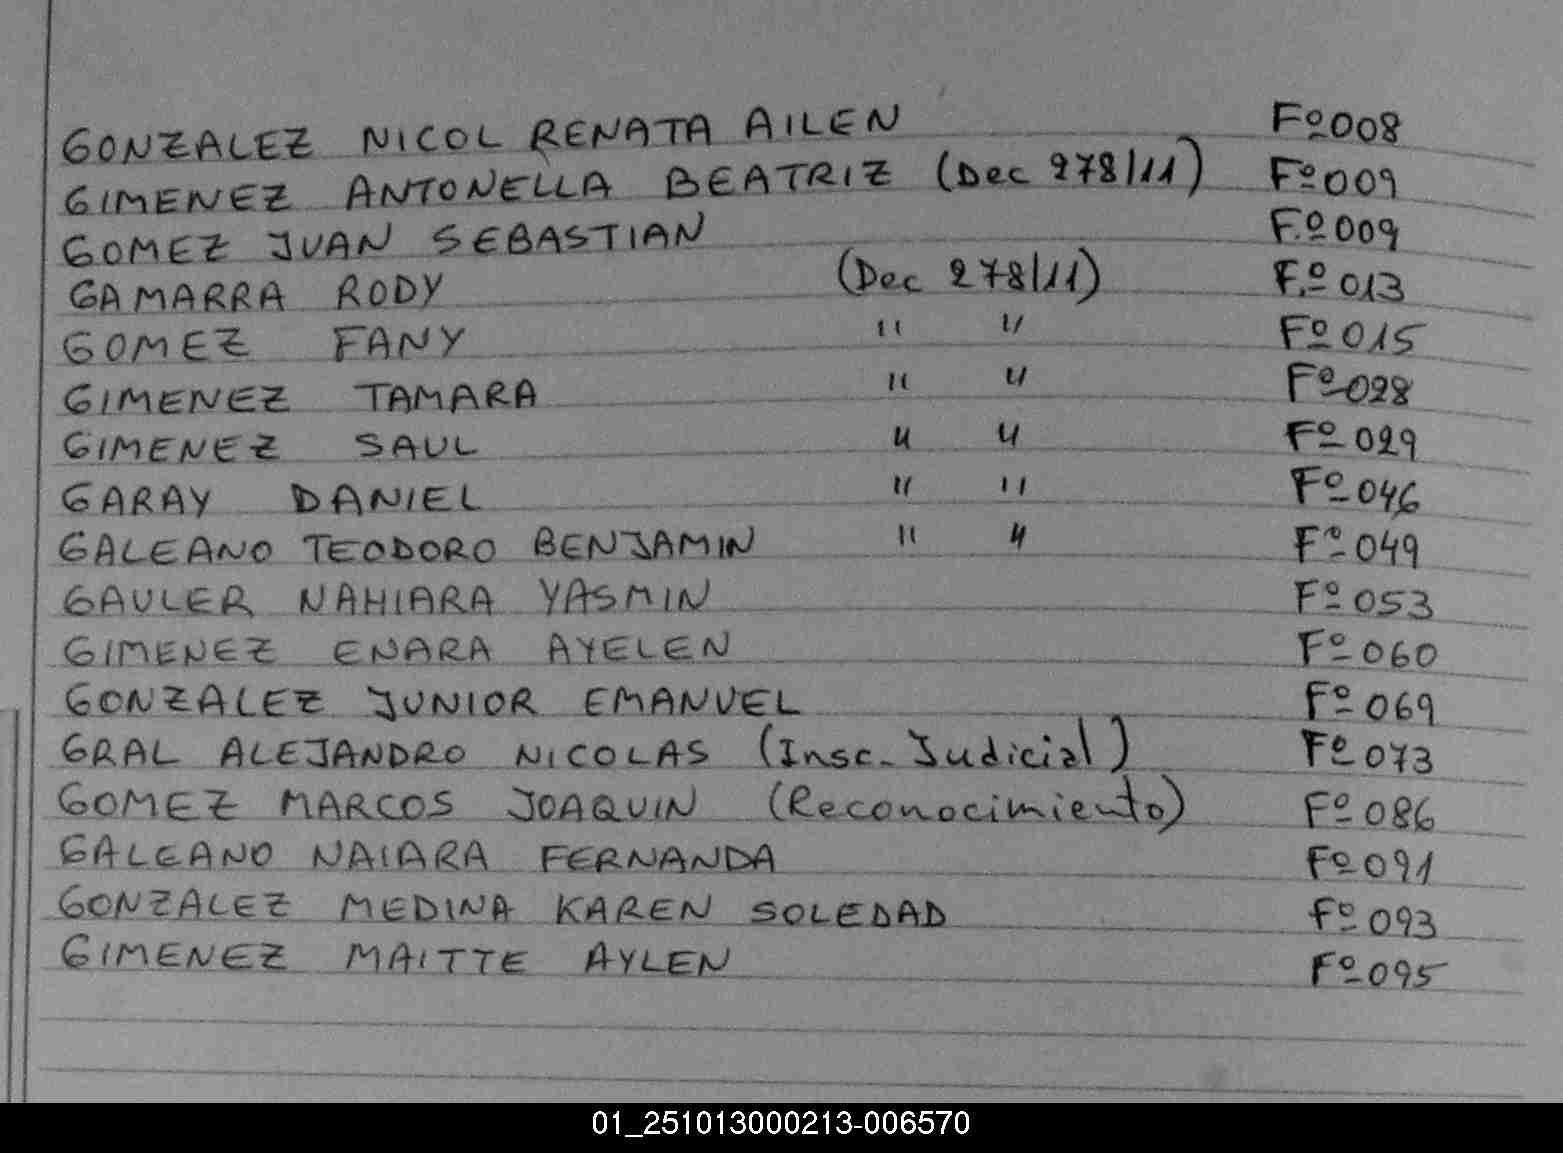 GONZALEZ NICOL RENATA AILEN Fº008
GIMENEZ ANTONELLA BEATRIZ (Dec 278/11) Fº009
GOMEZ JUAN SEBASTIAN F.º009
GAMARRA RODY (Dec 278/11) F.º013
GOMEZ FANY " " Fº015
GIMENEZ TAMARA " " Fº028
GIMENEZ SAUL " " Fº029
GARAY DANIEL " " Fº046
GALEANO TEODORO BENJAMIN " " Fº049
GAULER NAHIARA YASMIN Fº053
GIMENEZ ENARA AYELEN Fº060
GONZALEZ JUNIOR EMANUEL Fº069
GRAL ALEJANDRO NICOLAS (Insc. Judicial) Fº073
GOMEZ MARCOS JOAQUIN (Reconocimiento) Fº086
GALEANO NAIARA FERNANDA Fº091
GONZALEZ MEDINA KAREN SOLEDAD Fº093
GIMENEZ MAITTE AYLEN Fº095
01_251013000213-006570